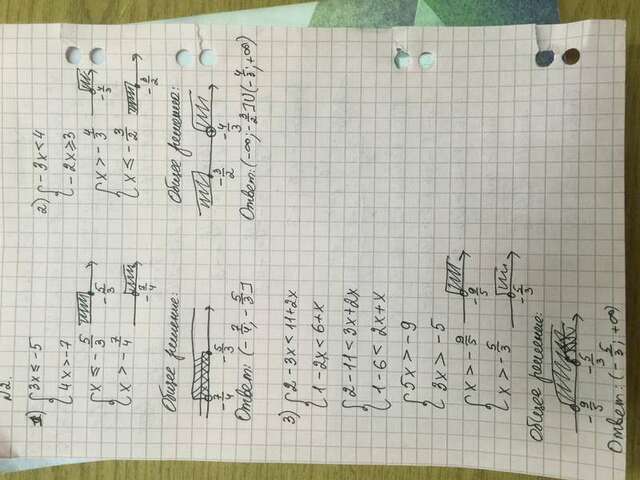 №2.
1) {3x ≤ -5
{4x > -7
{x ≤ -5/3
{x > -7/4
-5/3
-7/4
Общее решение:
-7/4 -5/3
Ответ: (-7/4; -5/3]
2) {-3x < 4
{-2x ≥ 3
{x > -4/3
{x ≤ -3/2
-4/3
-3/2
Общее решение:
-3/2 -4/3
Ответ: (-∞; -3/2]U(-4/3; +∞)
3) {2-3x < 11+2x
{1-2x < 6+x
{2-11 < 3x+2x
{1-6 < 2x+x
{5x > -9
{3x > -5
{x > -9/5
{x > -5/3
-9/5
-5/3
Общее решение:
-9/5 -5/3
Ответ: (-5/3; +∞)